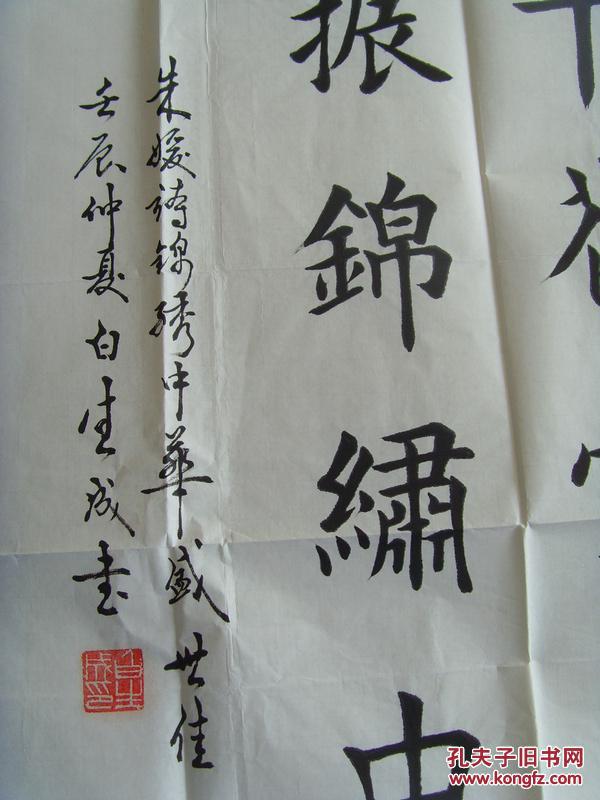 振錦繡中
朱媛诗錦绣中華盛世佳
壬辰仲夏白生成书
白生成印
孔夫子旧书网
www.kongfz.com